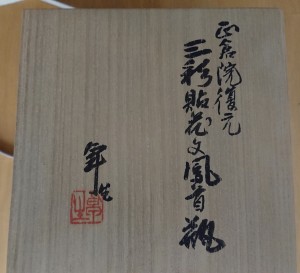 正倉院復元
三彩貼花文鳳首瓶